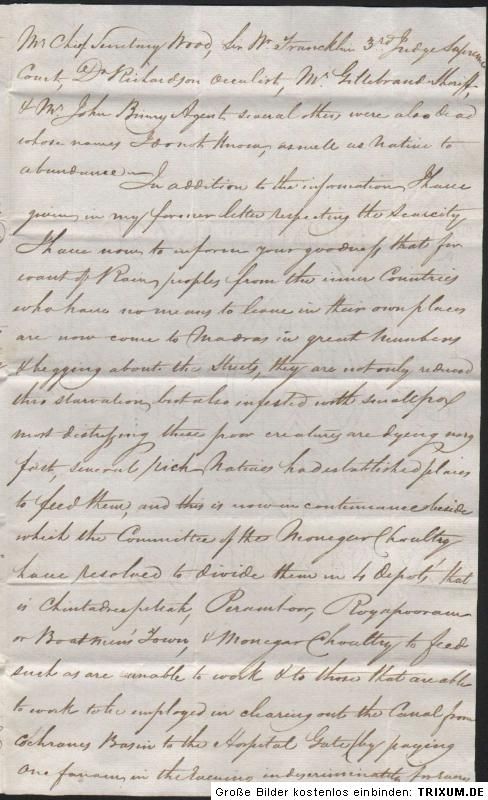 Mr Chief Secretary Wood, Sir Wm Francklin 3rd Judge Supreme
Court, Dr Richardson Occulist, Mr Gillebrand Sheriff
& Mr John Binny Agent several others were also dead
whose names I do not know, as well as Native to
abundance — In addition to the information I have
given in my former letter respecting the scarcity
I have now to inform your goodness that for
want of Rain, peoples from the inner Countries
who have no means to leave in their own places
are now come to Madras in great Numbers
& begging about the Streets, they are not only reduced
this starvation, but also infested with smallpox
most distressing these poor creatures are dyeing very
fast, several rich Natives had established places
to feed them, and this is now in continuance beside
which the Committee of the Monegar Choultry
have resolved to divide them in 4 depots that
is Chintadreepettah, Peramboor, Royapooram
or Boatmen's Town, & Monegar Choultry to feed
such as are unable to work & to those that are able
to work to be employed in clearing out the Canal from
Cochranes Basin to the Hospital Gate (by paying
One fanam in the Evening indiscriminately
Große Bilder kostenlos einbinden: TRIXUM.DE